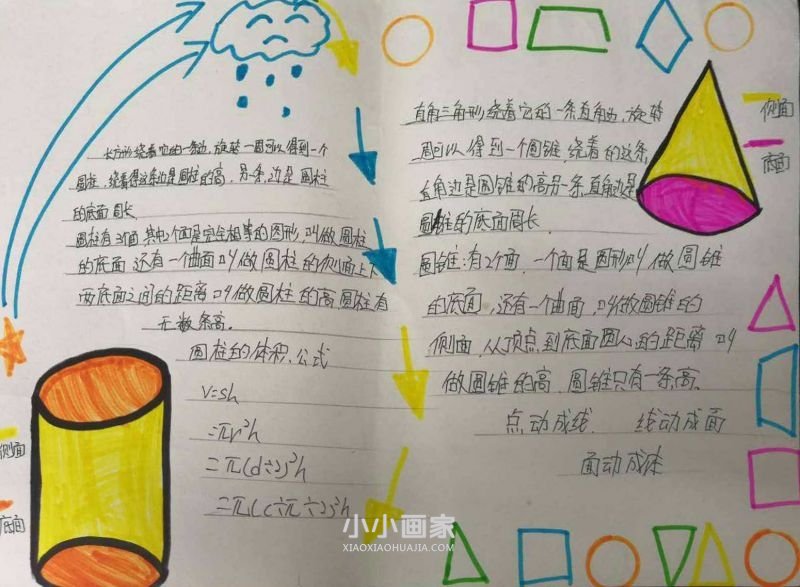 长方形绕着它的一条边，旋转一圈可以得到一个
圆柱，绕着得这条边是圆柱的高，另一条，边是圆柱
的底面周长.
圆柱有3个面 其中2个面是完全相等的图形，叫做圆柱
的底面 还有一个曲面叫做圆柱的侧面上下
两底面之间的距离叫做圆柱的高圆柱有
无数条高.
圆柱的体积公式
V=sh
=πr²h
=π(d÷2)²h
=π(c÷π÷2)²h
侧面
底面
直角三角形绕着它的一条直角边，旋转
周可以得到一个圆锥 绕着的这条
直角边是圆锥的高另一条直角边是
圆锥的底面周长.
圆锥:有2个面.一个面是圆形叫做圆锥
的底面，还有一个曲面，叫做圆锥的
侧面.从顶点到底面圆心的距离叫
做圆锥的高.圆锥只有一条高.
点动成线. 线动成面
面动成体
侧面
底面
小小画家
XIAOXIAOHUAJIA.COM